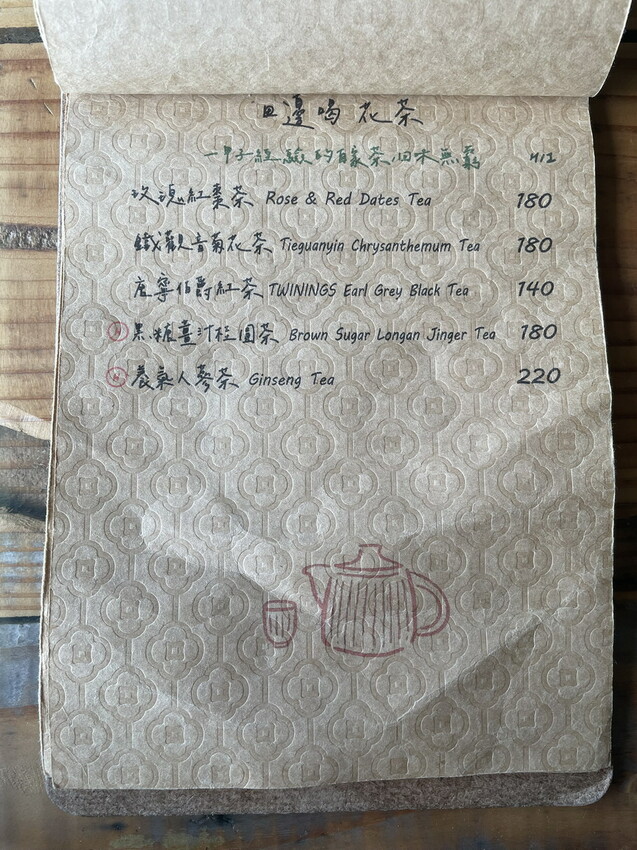 田邊喝花茶
一甲子經驗的自家茶 回味無窮 H/I
玫瑰紅棗茶 Rose & Red Dates Tea 180
鐵觀音菊花茶 Tieguanyin Chrysanthemum Tea 180
唐寧伯爵紅茶 TWININGS Earl Grey Black Tea 140
H 黑糖薑汁桂圓茶 Brown Sugar Longan Jinger Tea 180
H 養氣人蔘茶 Ginseng Tea 220